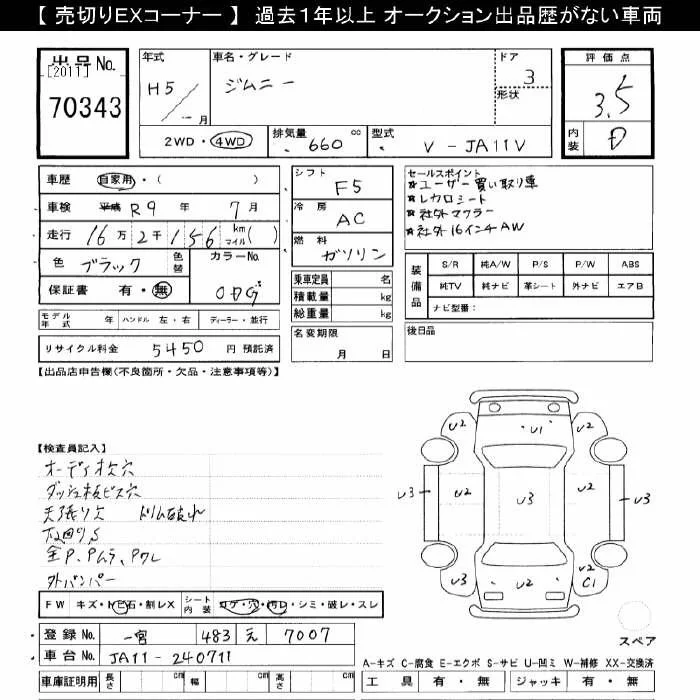 【 売切りEXコーナー 】 過去1年以上 オークション出品歴がない車両
出品No.
[2011]
70343
年式
H5
月
車名・グレード
ジムニー
ドア
3
形状
2WD・4WD
排気量 660 cc
型式 V-JA11V
評価点
3.5
内装 D
車歴 自家用・( )
車検 平成 R9 年 7月
走行 16万2千156 km マイル( )
色 ブラック 色替
カラーNo.
保証書 有・無
シフト F5
冷房 AC
燃料 ガソリン
乗車定員 名
積載量 kg
総重量 kg
名変期限 月 日
セールスポイント
★ユーザー買い取り車
★レカロシート
★社外マフラー
★社外16インチAW
装備品
S/R 純A/W P/S P/W ABS
純TV 純ナビ 革シート 外ナビ エアB
ナビ型番:
後日品
モデル年式 年 ハンドル 左・右 ディーラー・並行
リサイクル料金 5450 円 預託済
【出品店申告欄(不良箇所・欠品・注意事項等)】
【検査員記入】
オーディオ枚穴
ダッシュ板ビス穴
天張り欠 ドリム破れ
下廻りS
全P.Pムラ、Pワレ
外バンパー
FW キズ・トビ石・割レX シート内装 コゲ・穴・汚レ・シミ・破レ・スレ
登録No. 一宮 483 え 7007
車台No. JA11-240711
車庫証明用 長さ cm 幅 cm 高さ cm
U2 U1 U2
U3 U2 U3 U2 U3
U3 U2 U2
C1
スペア
A-キズ C-腐食 E-エクボ S-サビ U-凹ミ W-補修 XX-交換済
工具 有・無 ジャッキ 有・無